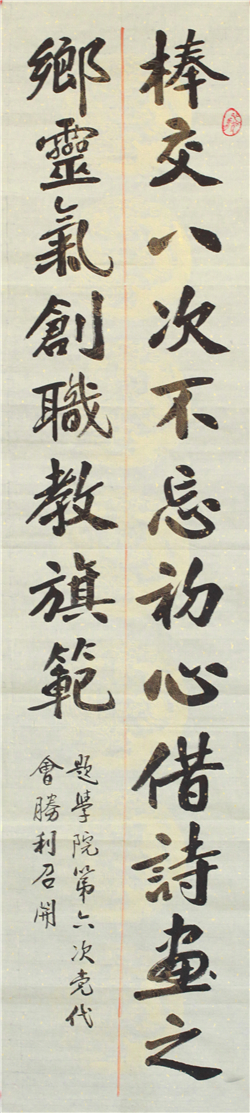 棒交八次不忘初心借詩畫之
鄉靈氣創職教旗範
題學院第六次党代
會勝利召開